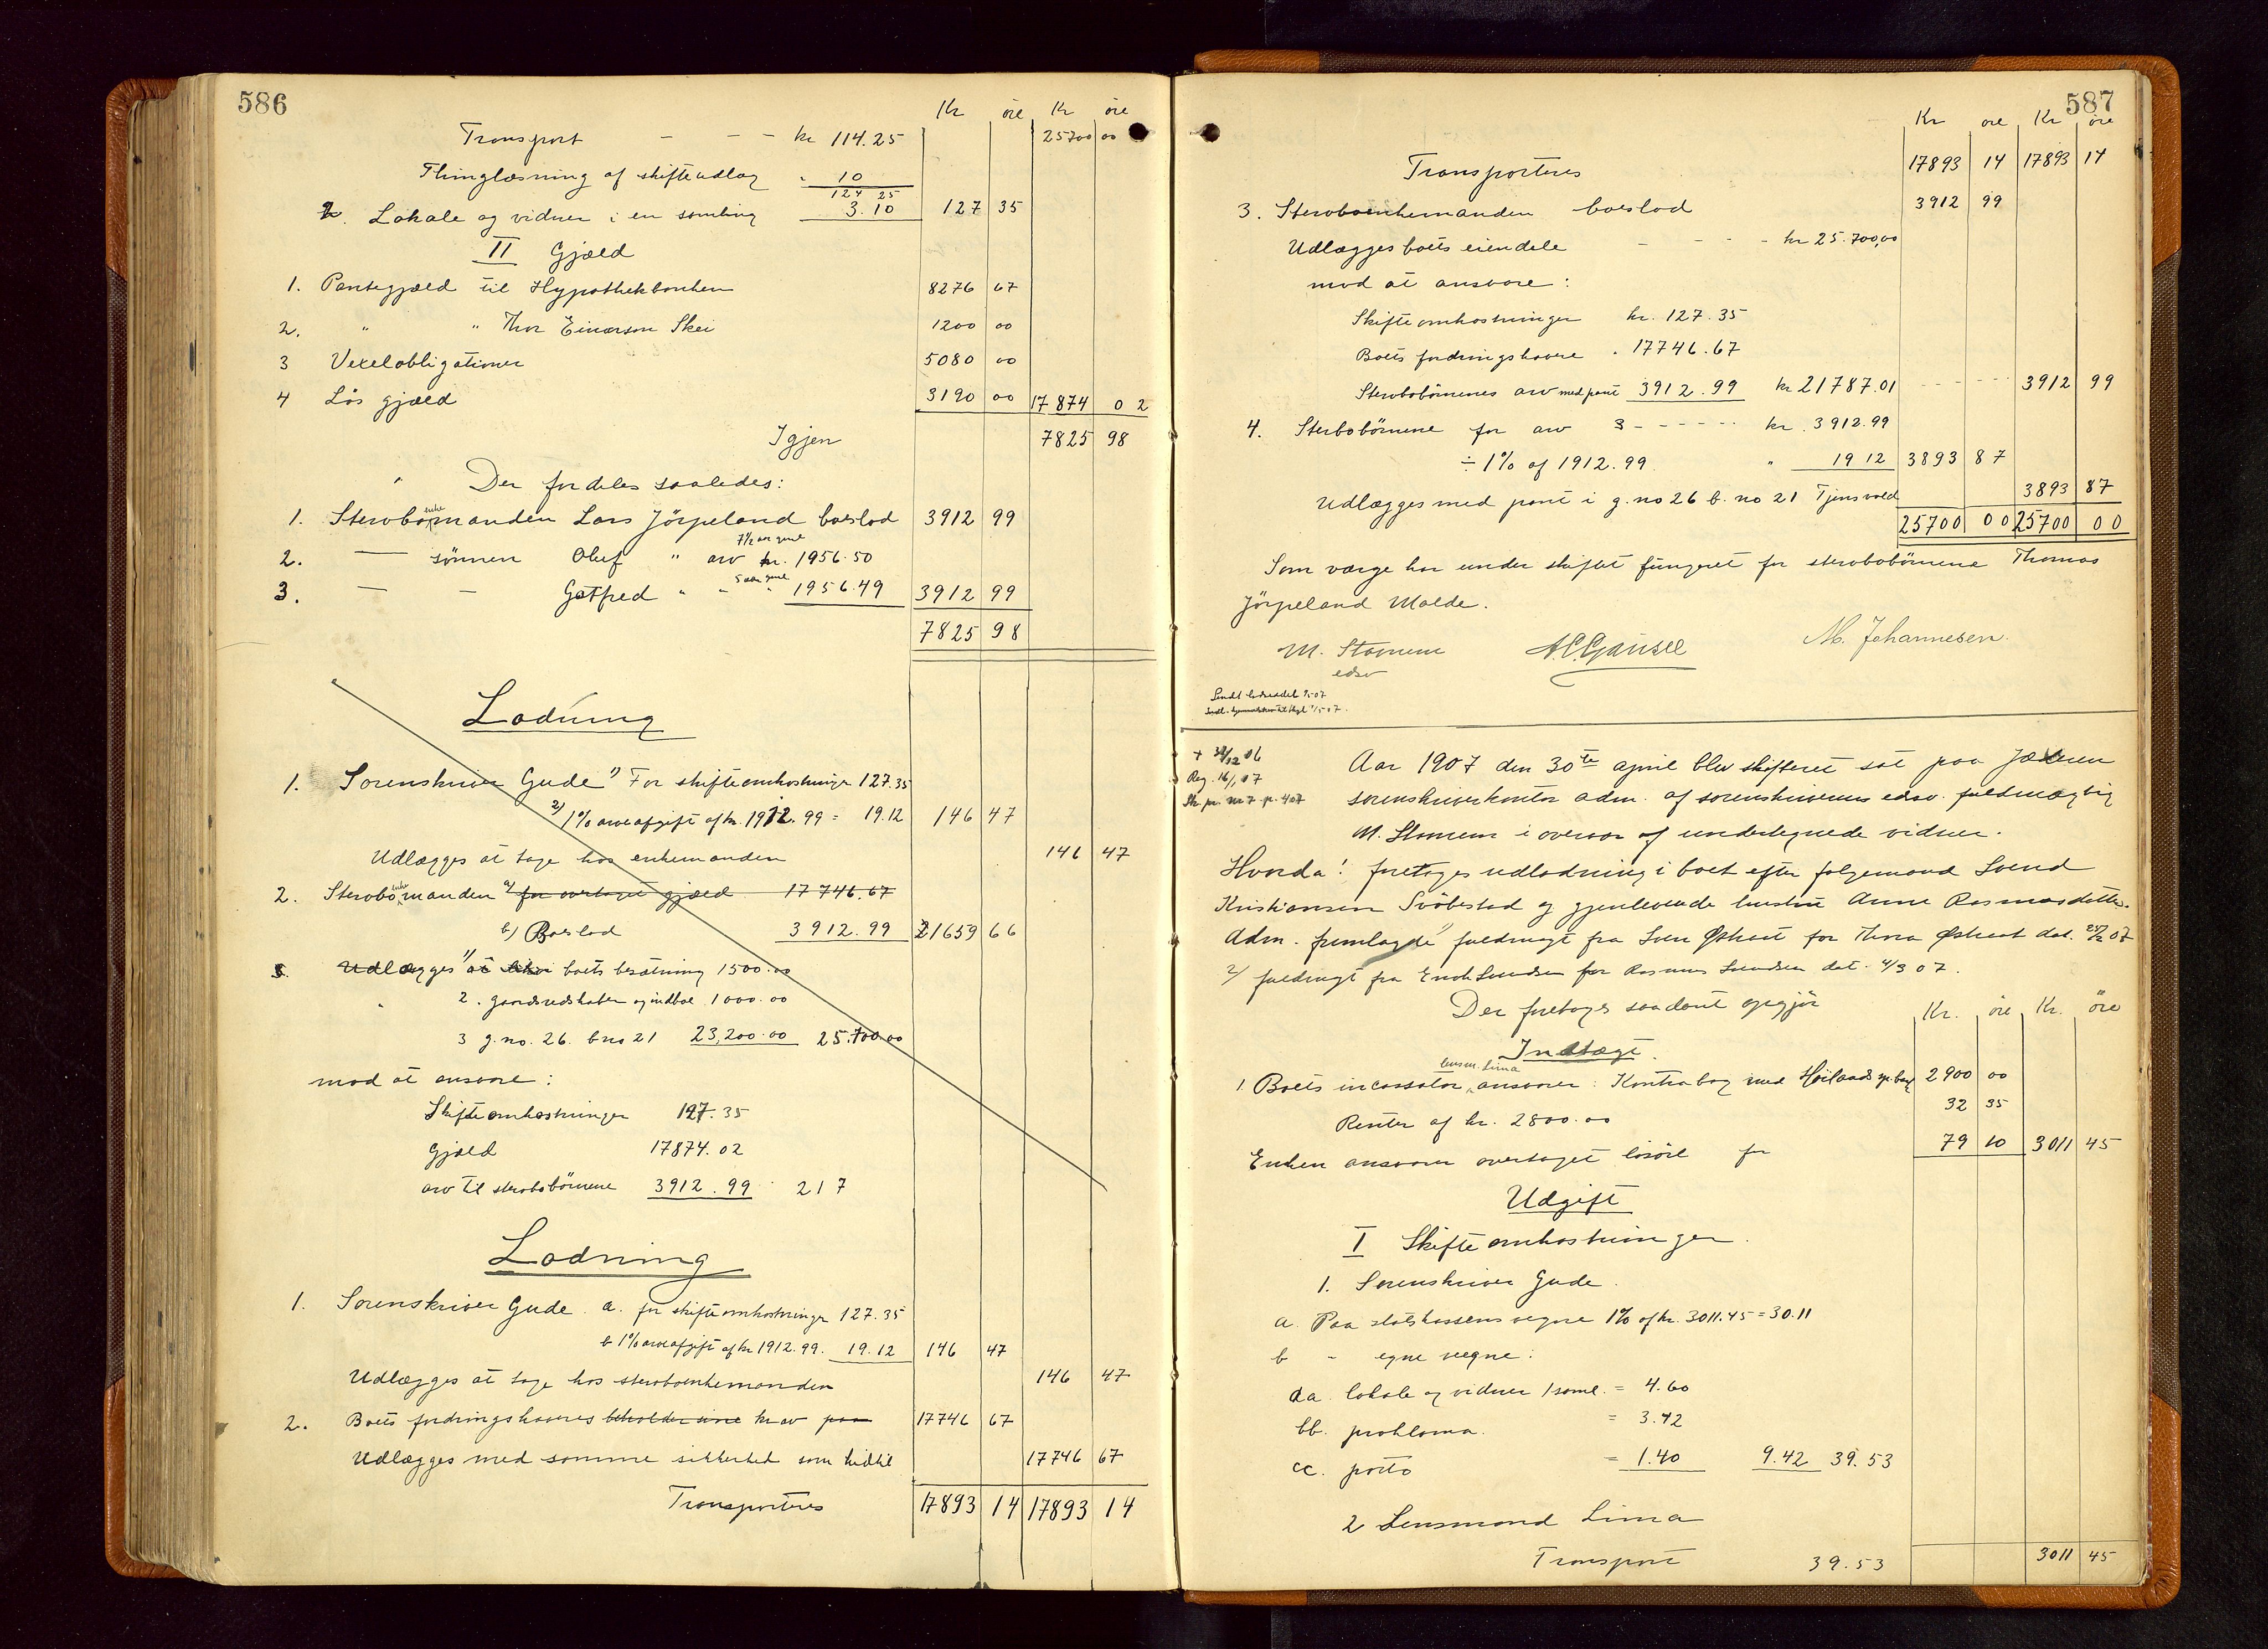 586
Kr öre Kr öre
Transport - - - kr 114.25 25700 00
Thinglæsning af skifteudlæg " 10
124 25
2. Lokale og vidner i en samling 3.10 127 35
II Gjæld
1. Pantegjæld til Hypothekbanken 8276 67
2. " " Thor Einarson Skei 1200 00
3 Vexelobligationer 5080 00
4 Løs gjæld 3190 00 17874 02
Igjen 7825 98
Der fordeles saaledes:
1. Stervboenkemanden Lars Jörpeland boeslod 3912 99
2. — sønnen Oluf " 7 1/2 aar gml arv kr. 1956.50
3. — - Gotfred " - 5 aar gml " 1956.49 3912 99
7825 98
Lodning
1. Sorenskriver Gude 1) For skifteomkostninger 127.35
2) 1% arveafgift af kr. 1912.99 = 19.12 146 47
Udlægges at tage hos enkemanden 146 47
2. Stervboenkemanden a) for overtaget gjæld 17746.67
b) Boeslod 3912.99 21659 66
3. Udlægges 1) at boets besætning 1500.00
" 2. gaardsredskaber og indbo 1000.00
3 g.no. 26. bno 21 23,200.00 25.700.00
mod at ansvare:
Skifteomkostninger 127.35
Gjæld 17874.02
arv til stervbobörnene 3912.99 217
Lodning
1. Sorenskriver Gude a. for skifteomkostninger 127.35
b 1% arveafgift af kr 1912.99. 19.12 146 47
Udlægges at tage hos stervboenkemanden 146 47
2. Boets fordringshaveres beholder sine krav paa 17746 67
Udlægges med samme sikkerhed som hidtil 17746 67
Transporteres 17893 14 17893 14
587
Kr öre Kr öre
Transporteres 17893 14 17893 14
3. Stervboenkemanden boeslod 3912 99
Udlægges boets eiendele - - - - kr 25.700,00
mod at ansvare:
Skifteomkostninger kr. 127.35
Boets fordringshavere " 17746.67
Stervbobörnenes arv med pant 3912.99 kr 21787.01 - - - - 3912 99
4. Sterbobörnene for arv 3 - - - - - kr. 3912.99
÷ 1% af 1912.99 " 19 12 3893 87
Udlægges med pant i g.no 26 b.no 21 Tjensvold 3893 87
25700 00 25700 00
Som værge har under skiftet fungeret for stervbobörnene Thomas
Jörpeland Malde.
M. Stamem A. C. Gausel M. Johannesen.
edsv
+ 12 06
Reg. 16/1 07
Sk. pr. no 7 p. 407
Aar 1907 den 30te april blev skifteret sat paa Jæderen
sorenskriverkontor adm. af sorenskriverens edsv. fuldmægtig
M. Stamem i overvær af undertegnede vidner.
Hvorda! foretoges udlodning i boet efter følgemand Svend
Kristiansen Svöbestad og gjenlevende hustru Anne Rasmusdatter.
Adm. fremlagde 1) fuldmagt fra Sven Østraat for Thora Østraat dat. 07
2/ fuldmagt fra Enok Svendsen for Rasmus Svendsen dat. 4/3 07.
Der foretoges saadant opgjör
Kr. öre Kr. öre
Indtægt
1 Boets incassator lensm. Lima ansvarer: Kontrabog med Høilands sp.bank 2900 00
Renter af kr. 2800.00 32 35
Enken ansvarer overtaget lösöre for 79 10 3011 45
Udgift
I Skifteomkostninger.
1. Sorenskriver Gude.
a. Paa statskassens vegne 1% af kr. 3011.45 = 30.11
b - egne vegne:
aa. lokale og vidner 1 saml. = 4.60
bb. proklama. = 3.42
cc. porto = 1.40 9.42 39.53
2 Lensmand Lima
Transport 39.53 3011 45